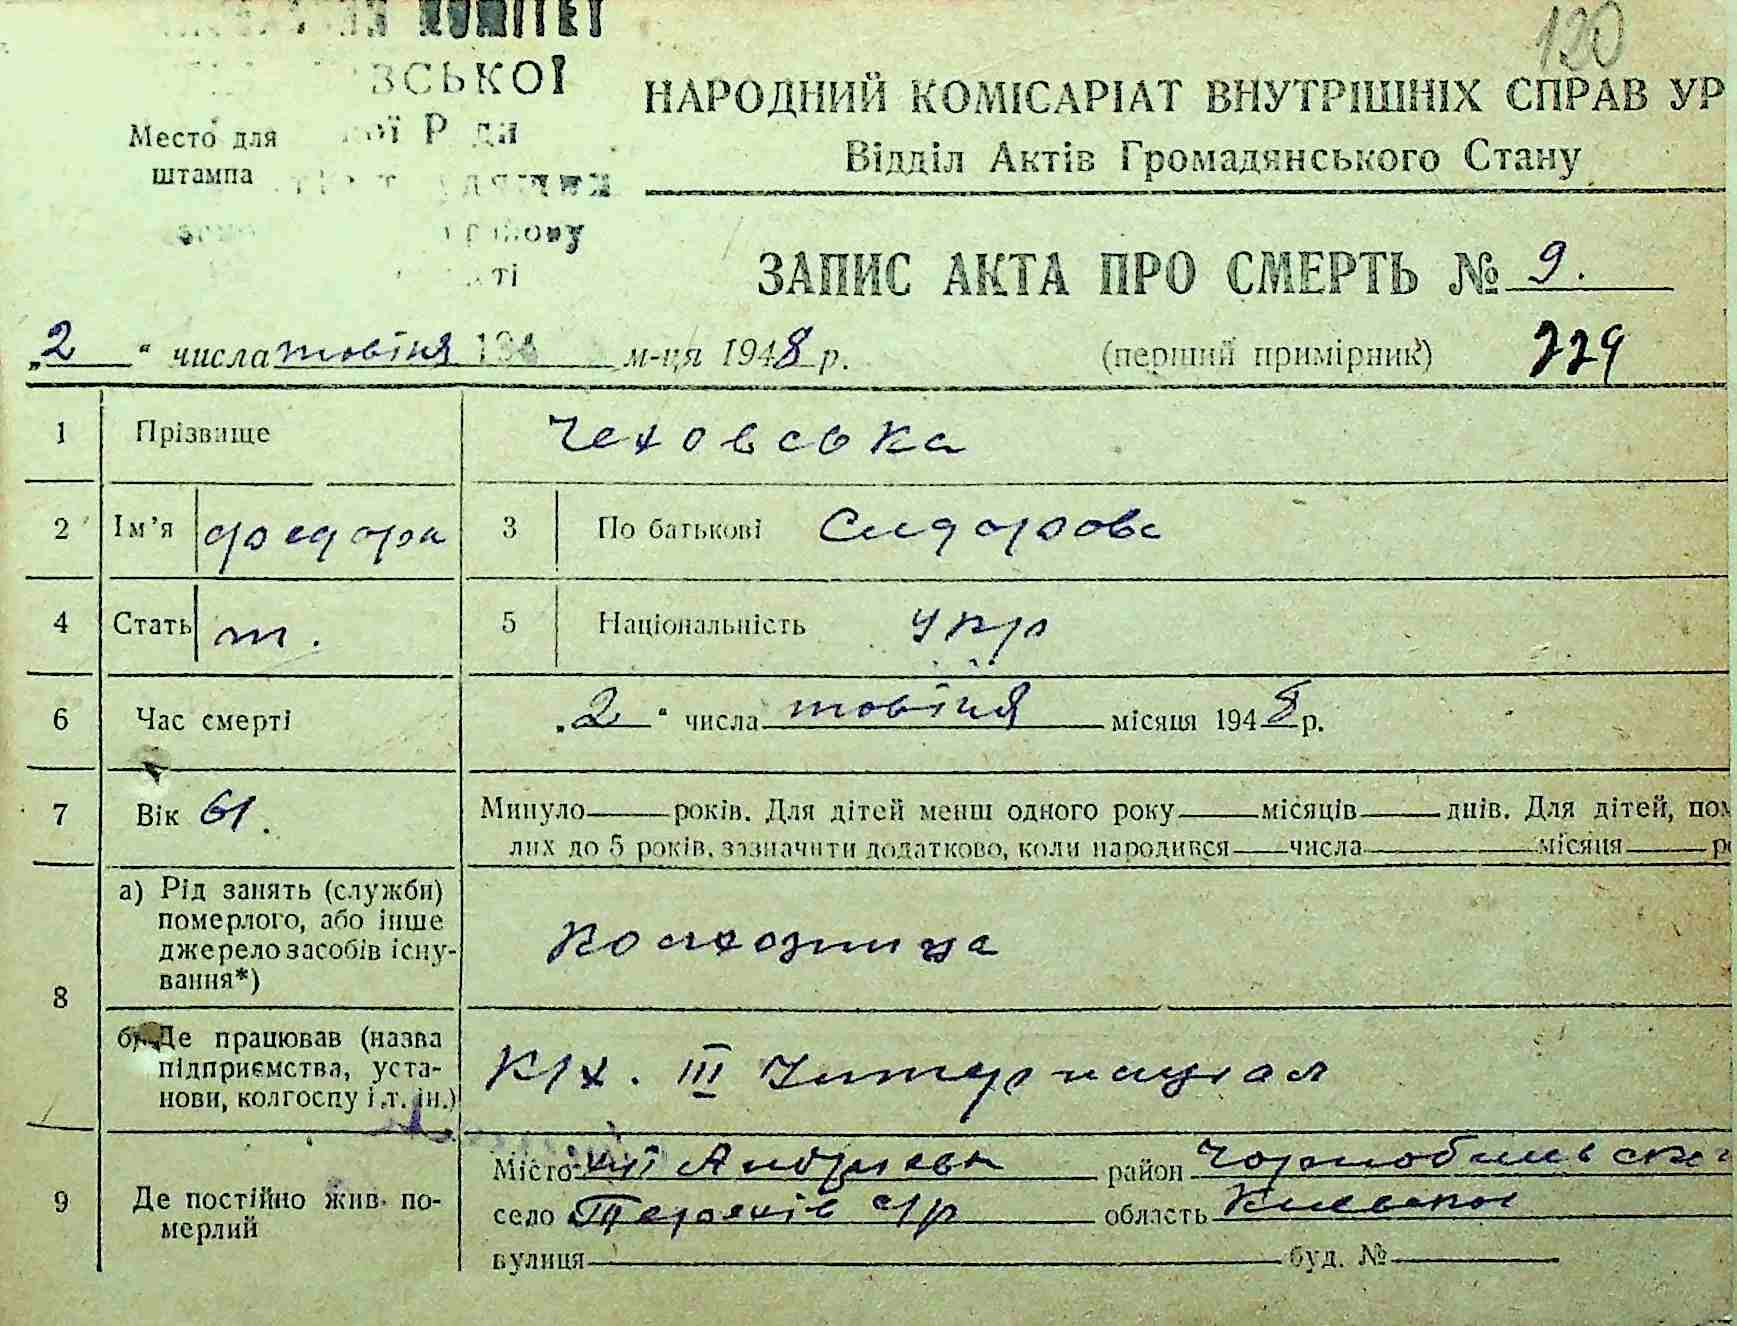 120
КОМІТЕТ
ВСЬКОЇ
Место для
штампа
НАРОДНИЙ КОМІСАРІАТ ВНУТРІШНІХ СПРАВ УР
Відділ Актів Громадянського Стану
ЗАПИС АКТА ПРО СМЕРТЬ № 9.
„2 “ числа жовтня м-ця 1948 р. (перший примірник) 229
1 Прізвище Чеховська
2 Ім’я Федора 3 По батькові Сидоровa
4 Стать ж. 5 Національність укр
6 Час смерті „2 “ числа жовтня місяця 1948 р.
7 Вік 61. Минуло років. Для дітей менш одного року місяців днів. Для дітей, пом
лих до 5 років, зазначити додатково, коли народився числа місяця р
8 а) Рід занять (служби)
померлого, або інше
джерело засобів існу-
вання*)
Колхозница
б) Де працював (назва
підприємства, уста-
нови, колгоспу і т. ін.)
К/х. III Интернацыал
9 Де постійно жив по-
мерлий
Місто район Чорнобильский
село с/р область Киевская
вулиця буд. №